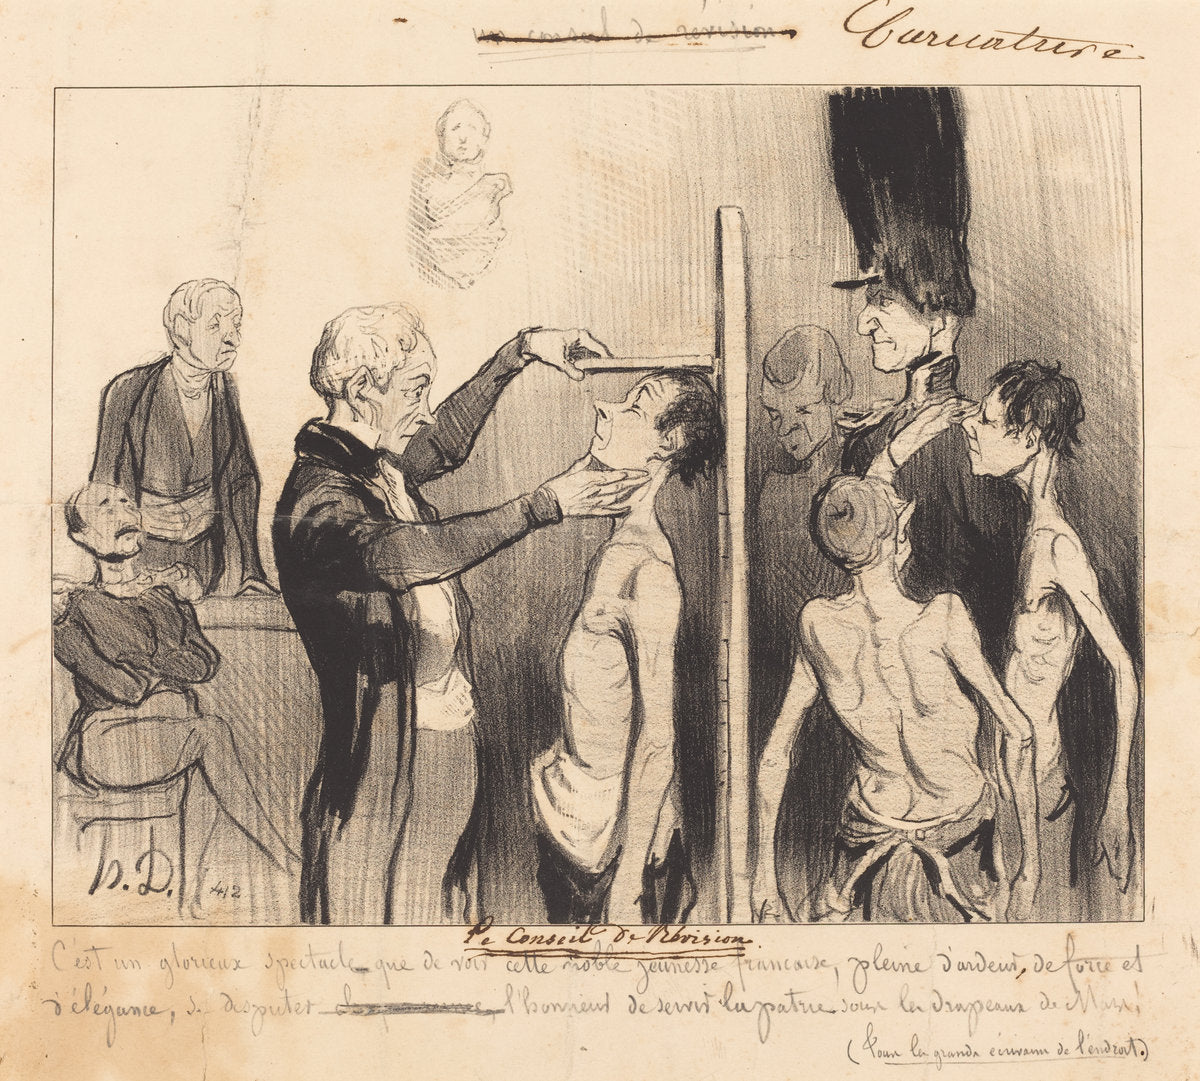 Un conseil de révision
Caricature
h. D.
412
Le Conseil de Révision.
C'est un glorieux spectacle que de voir cette noble jeunesse française, pleine d'ardeur, de force et
d'élégance, se disputer l'honneur de servir la patrie sous les drapeaux de Mars!
(Tous les grands écrivains de l'endroit.)